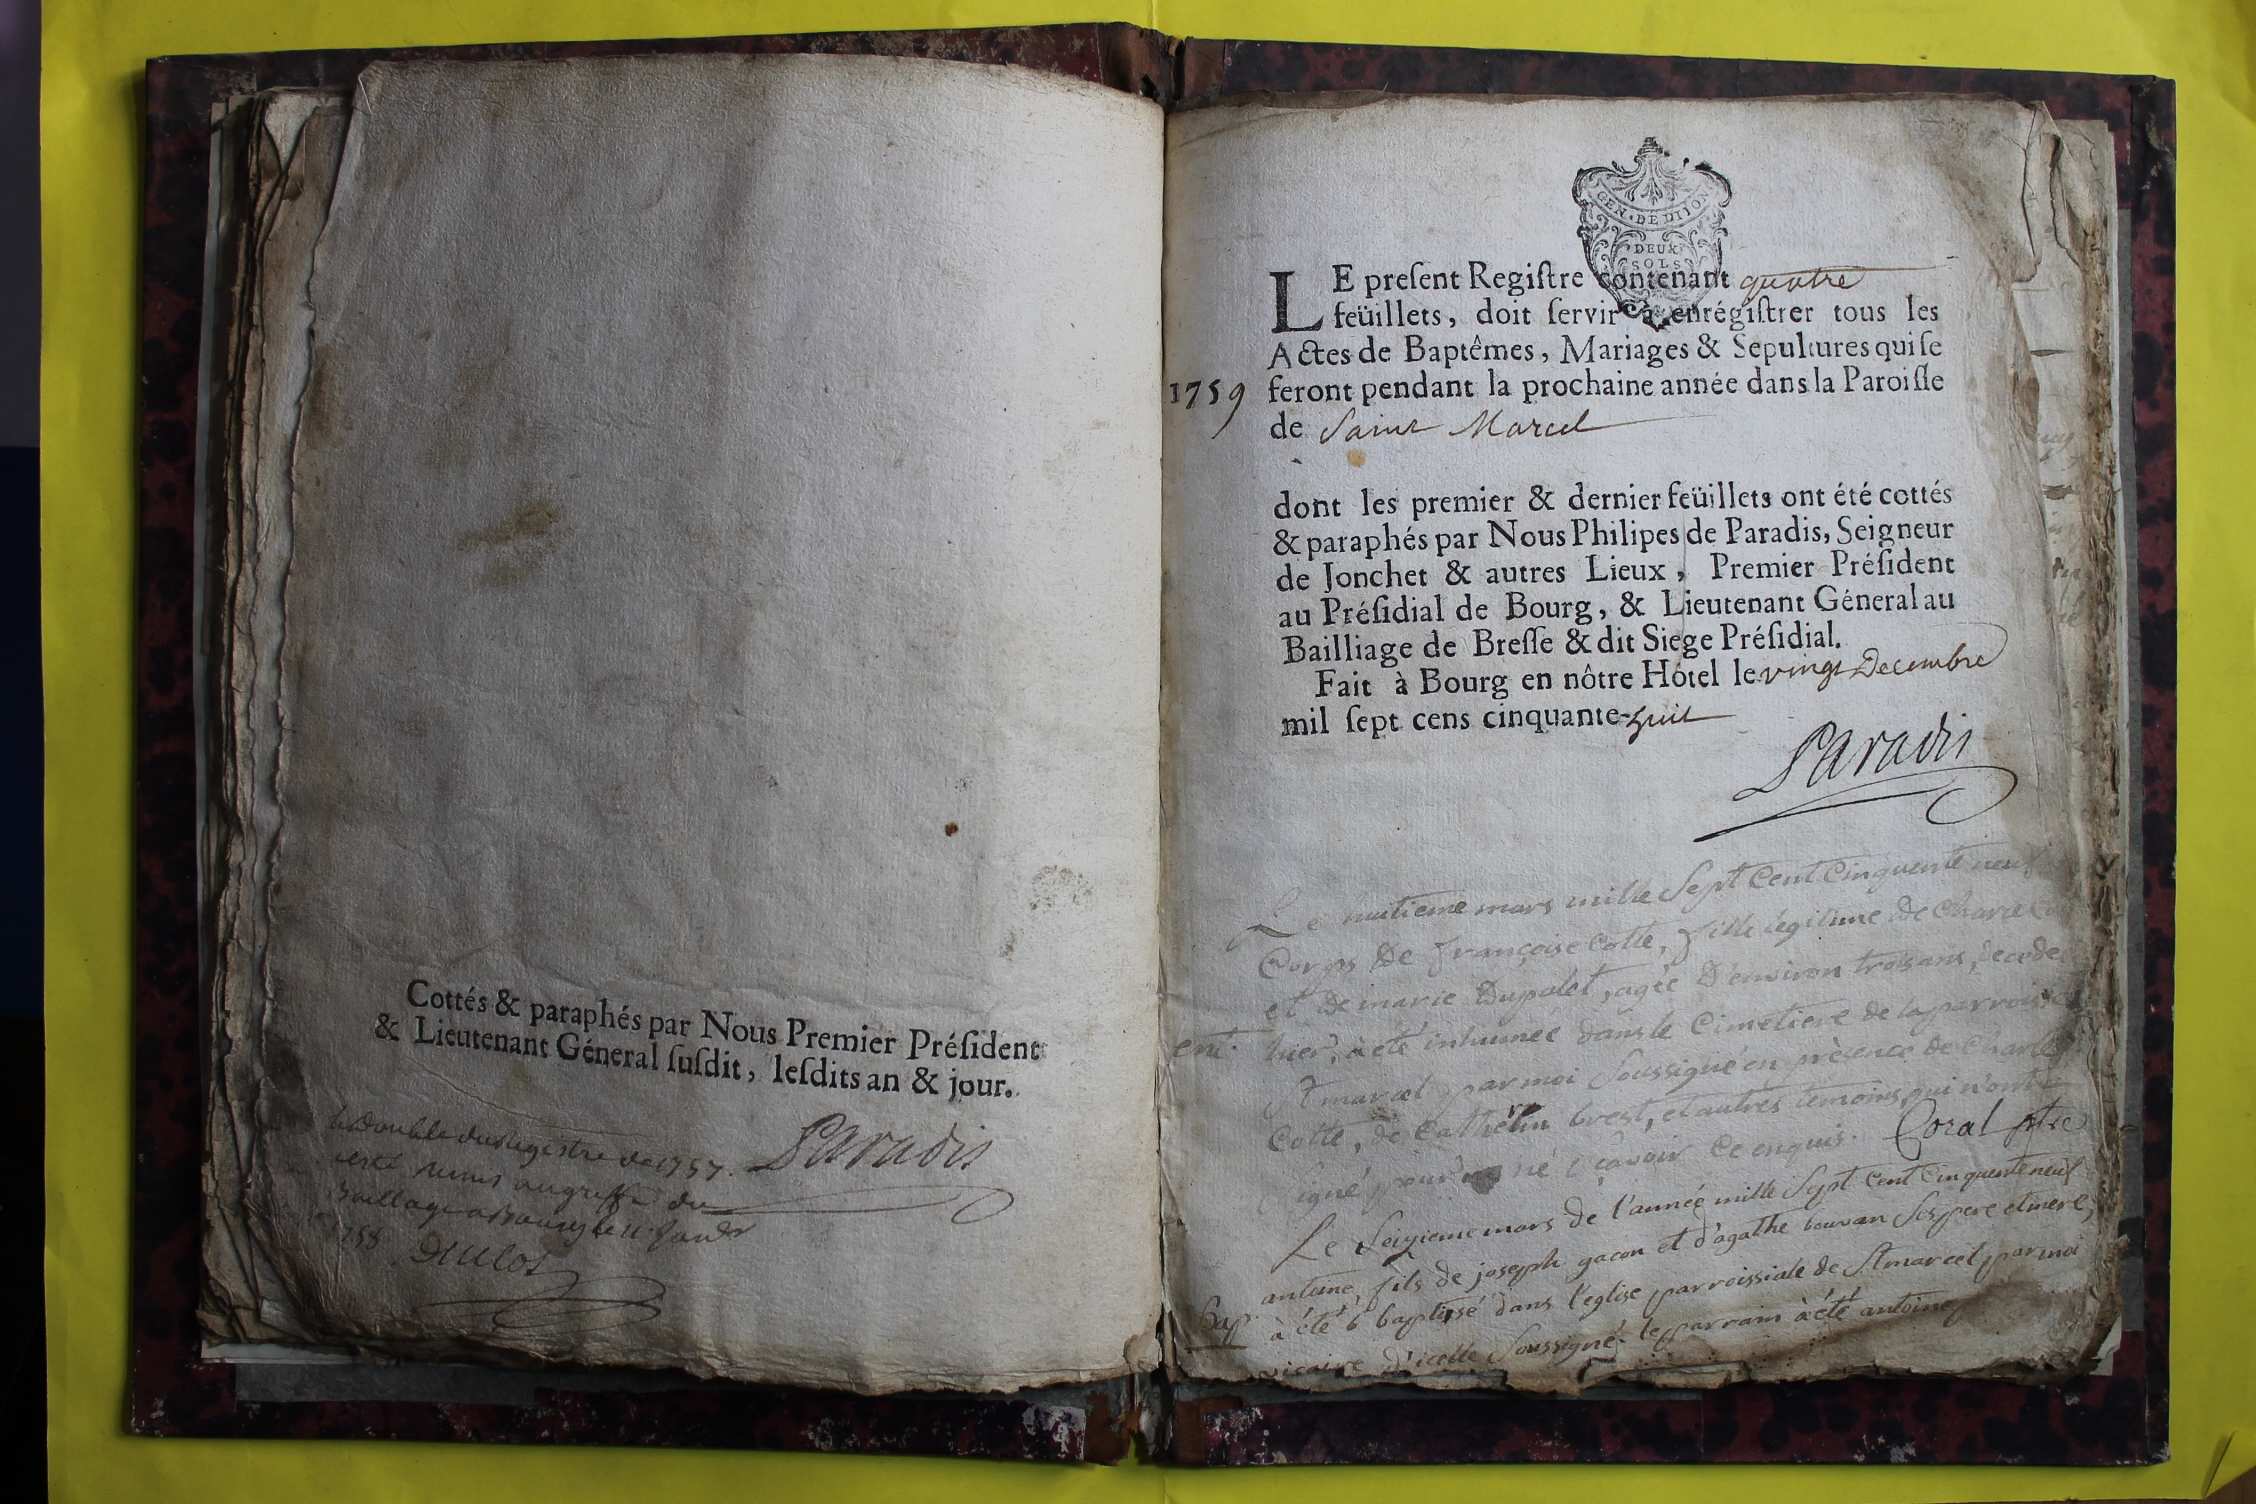 Cottés & paraphés par Nous Premier Préſident
& Lieutenant Géneral ſuſdit, leſdits an & jour.
Paradis
le Double du Registre de 1757
a esté remis au greffe du
Baillage a Bourg le 11. Janv.
1758
GEN · DE DIJON
DEUX
SOLS
LE preſent Regiſtre contenant quatre
feüillets, doit ſervir à enrégiſtrer tous les
Actes de Baptêmes, Mariages & Sepultures qui ſe
1759 feront pendant la prochaine année dans la Paroiſſe
de Saint Marcel
dont les premier & dernier feüillets ont été cottés
& paraphés par Nous Philipes de Paradis, Seigneur
de Jonchet & autres Lieux, Premier Préſident
au Préſidial de Bourg, & Lieutenant Géneral au
Bailliage de Breſſe & dit Siege Préſidial.
Fait à Bourg en nôtre Hôtel le vingt Decembre
mil ſept cens cinquante-huit
Paradis
Le huitieme mars mille Sept Cent Cinquente neuf
Corps De françoise Cotte, fille legitime de Charle
et De marie Dupolet, agée D'environ trois ans, decedee
ent. hier, à été inhumée dans le Cimetiere de la parroisse
St marcel par moi Soussigné en présence de Charle
Cotte, de Cathelin brest, et autres temoins, qui n'ont
signé pour ne l Sçavoir Ce enquis. Coral ptre
Le Seizieme mars de l'année mille Sept Cent Cinquente neuf
antoine, fils de joseph gacon et d'agathe bouvan Ses pere et mere,
bap. à été b baptisé dans l'eglise parroissiale de St marcel par moi
vicaire d'icelle Soussigné. le parrain à été antoine